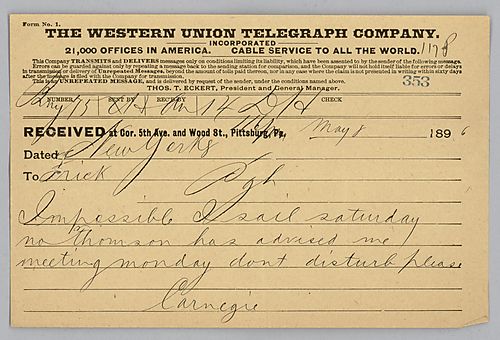 Form No. 1.
THE WESTERN UNION TELEGRAPH COMPANY.
INCORPORATED
21,000 OFFICES IN AMERICA. CABLE SERVICE TO ALL THE WORLD.
This Company TRANSMITS and DELIVERS messages only on conditions limiting its liability, which have been assented to by the sender of the following message.
Errors can be guarded against only by repeating a message back to the sending station for comparison, and the Company will not hold itself liable for errors or delays
in transmission or delivery of Unrepeated Messages, beyond the amount of tolls paid thereon, nor in any case where the claim is not presented in writing within sixty days
after the message is filed with the Company for transmission.
This is an UNREPEATED MESSAGE, and is delivered by request of the sender, under the conditions named above.
THOS. T. ECKERT, President and General Manager.
353
NUMBER SENT BY REC'D BY CHECK
RECEIVED at Cor. 5th Ave. and Wood St., Pittsburg, Pa. May 8 1896
Dated New York
To Frick Pgh
Impossible I sail saturday
no Thomson has advised me
meeting monday dont disturb please
Carnegie